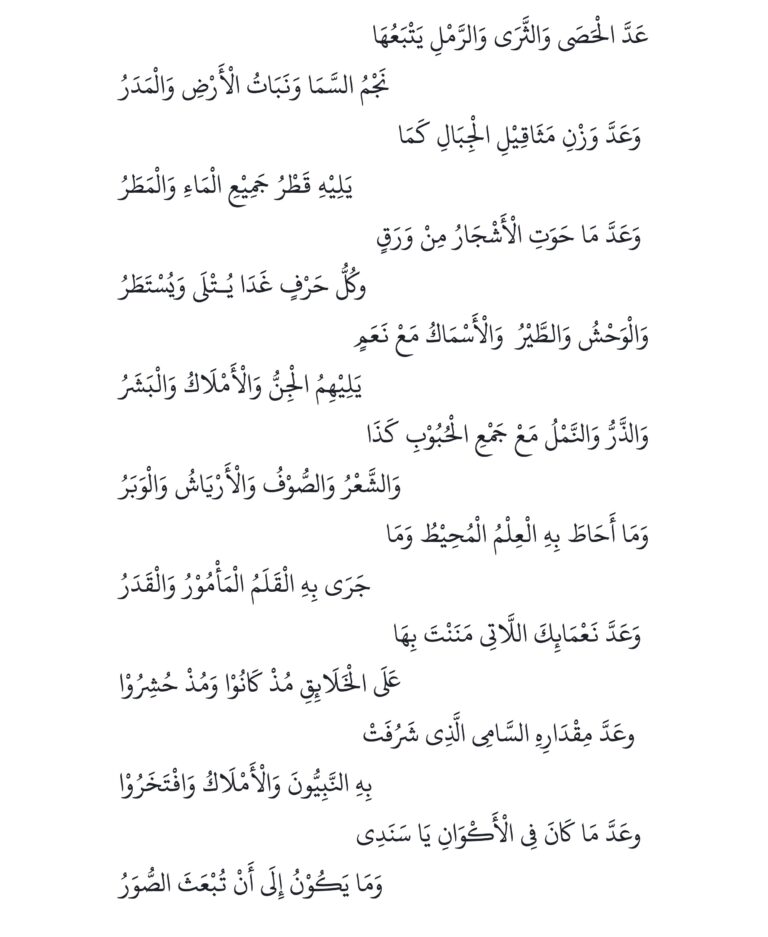 عَدَّ الْحَصَى وَالثَّرَى وَالرَّمْلِ يَتْبَعُهَا
نَجْمُ السَّمَا وَنَبَاتُ الْأَرْضِ وَالْمَدَرُ
وَعَدَّ وَزْنِ مَثَاقِيْلِ الْجِبَالِ كَمَا
يَلِيْهِ قَطْرُ جَمِيْعِ الْمَاءِ وَالْمَطَرُ
وَعَدَّ مَا حَوَتِ الْأَشْجَارُ مِنْ وَرَقٍ
وكُلُّ حَرْفٍ غَدَا يُـتْلَى وَيُسْتَطَرُ
وَالْوَحْشُ وَالطَّيْرُ وَالْأَسْمَاكُ مَعْ نَعَمٍ
يَلِيْهِمُ الْجِنُّ وَالْأَمْلَاكُ وَالْبَشَرُ
وَالذَّرُّ وَالنَّمْلُ مَعْ جَمْعِ الْحُبُوْبِ كَذَا
وَالشَّعْرُ وَالصُّوْفُ وَالْأَرْيَاشُ وَالْوَبَرُ
وَمَا أَحَاطَ بِهِ الْعِلْمُ الْمُحِيْطُ وَمَا
جَرَى بِهِ الْقَلَمُ الْمَأْمُوْرُ وَالْقَدَرُ
وَعَدَّ نَعْمَايِكَ اللَّاتِى مَنَنْتَ بِهَا
عَلَى الْخَلَايِقِ مُذْ كَانُوْا وَمُذْ حُشِرُوْا
وعَدَّ مِقْدَارِهِ السَّامِى الَّذِى شَرُفَتْ
بِهِ النَّبِيُّونَ وَالْأَمْلَاكُ وَافْتَخَرُوْا
وعَدَّ مَا كَانَ فِى الْأَكْوَانِ يَا سَنَدِى
وَمَا يَكُوْنُ إِلَى أَنْ تُبْعَثَ الصُّوَرُ